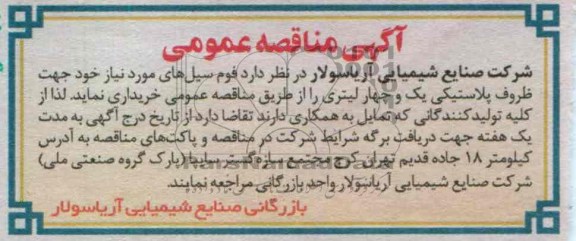 آگهی مناقصه عمومی
شرکت صنایع شیمیایی آریاسولار در نظر دارد فوم سیل‌های مورد نیاز خود جهت
ظروف پلاستیکی یک و چهار لیتری را از طریق مناقصه عمومی خریداری نماید. لذا از
کلیه تولیدکنندگانی که تمایل به همکاری دارند تقاضا دارد از تاریخ درج آگهی به مدت
یک هفته جهت دریافت برگه شرایط شرکت در مناقصه و پاکت‌های مناقصه به آدرس
کیلومتر ۱۸ جاده قدیم تهران کرج مجتمع سازه گستر سایپا (پارک گروه صنعتی ملی)
شرکت صنایع شیمیایی آریاسولار واحد بازرگانی مراجعه نمایند.
بازرگانی صنایع شیمیایی آریاسولار